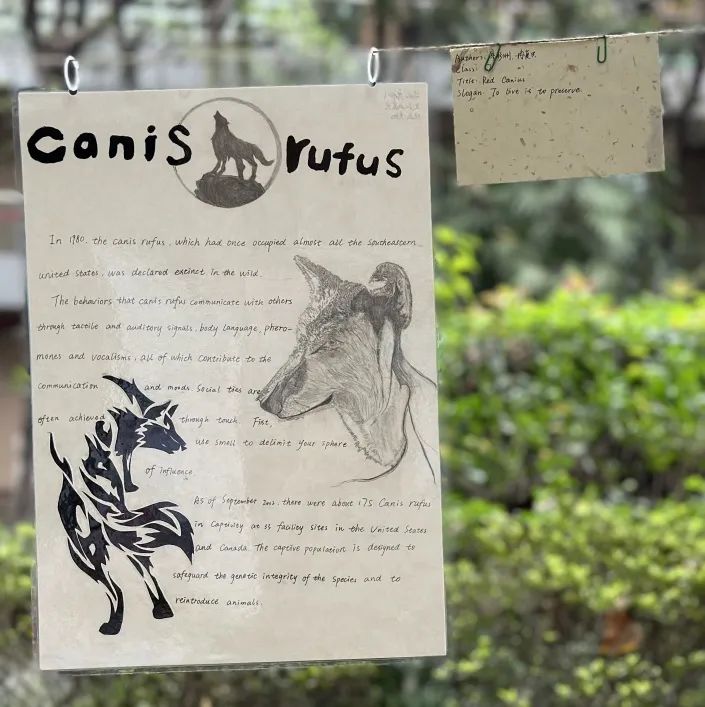 Canis rufus
In 1980, the canis rufus, which had once occupied almost all the Southeastern
united States, was declared extinct in the wild.
The behaviors that canis rufus communicate with others
through tactile and auditory signals, body language, phero-
mones and vocalisms, all of which contribute to the
communication and moods. Social ties are
often achieved through touch. First,
use smell to delimit your sphere
of influence.
As of September 2002, there were about 175 Canis rufus
in Captivity at 33 facility sites in the United States
and Canada. The captive population is designed to
safeguard the genetic integrity of the species and to
reintroduce animals.
Author:
Class:
Title: Red Canius
Slogan: To live is to preserve.